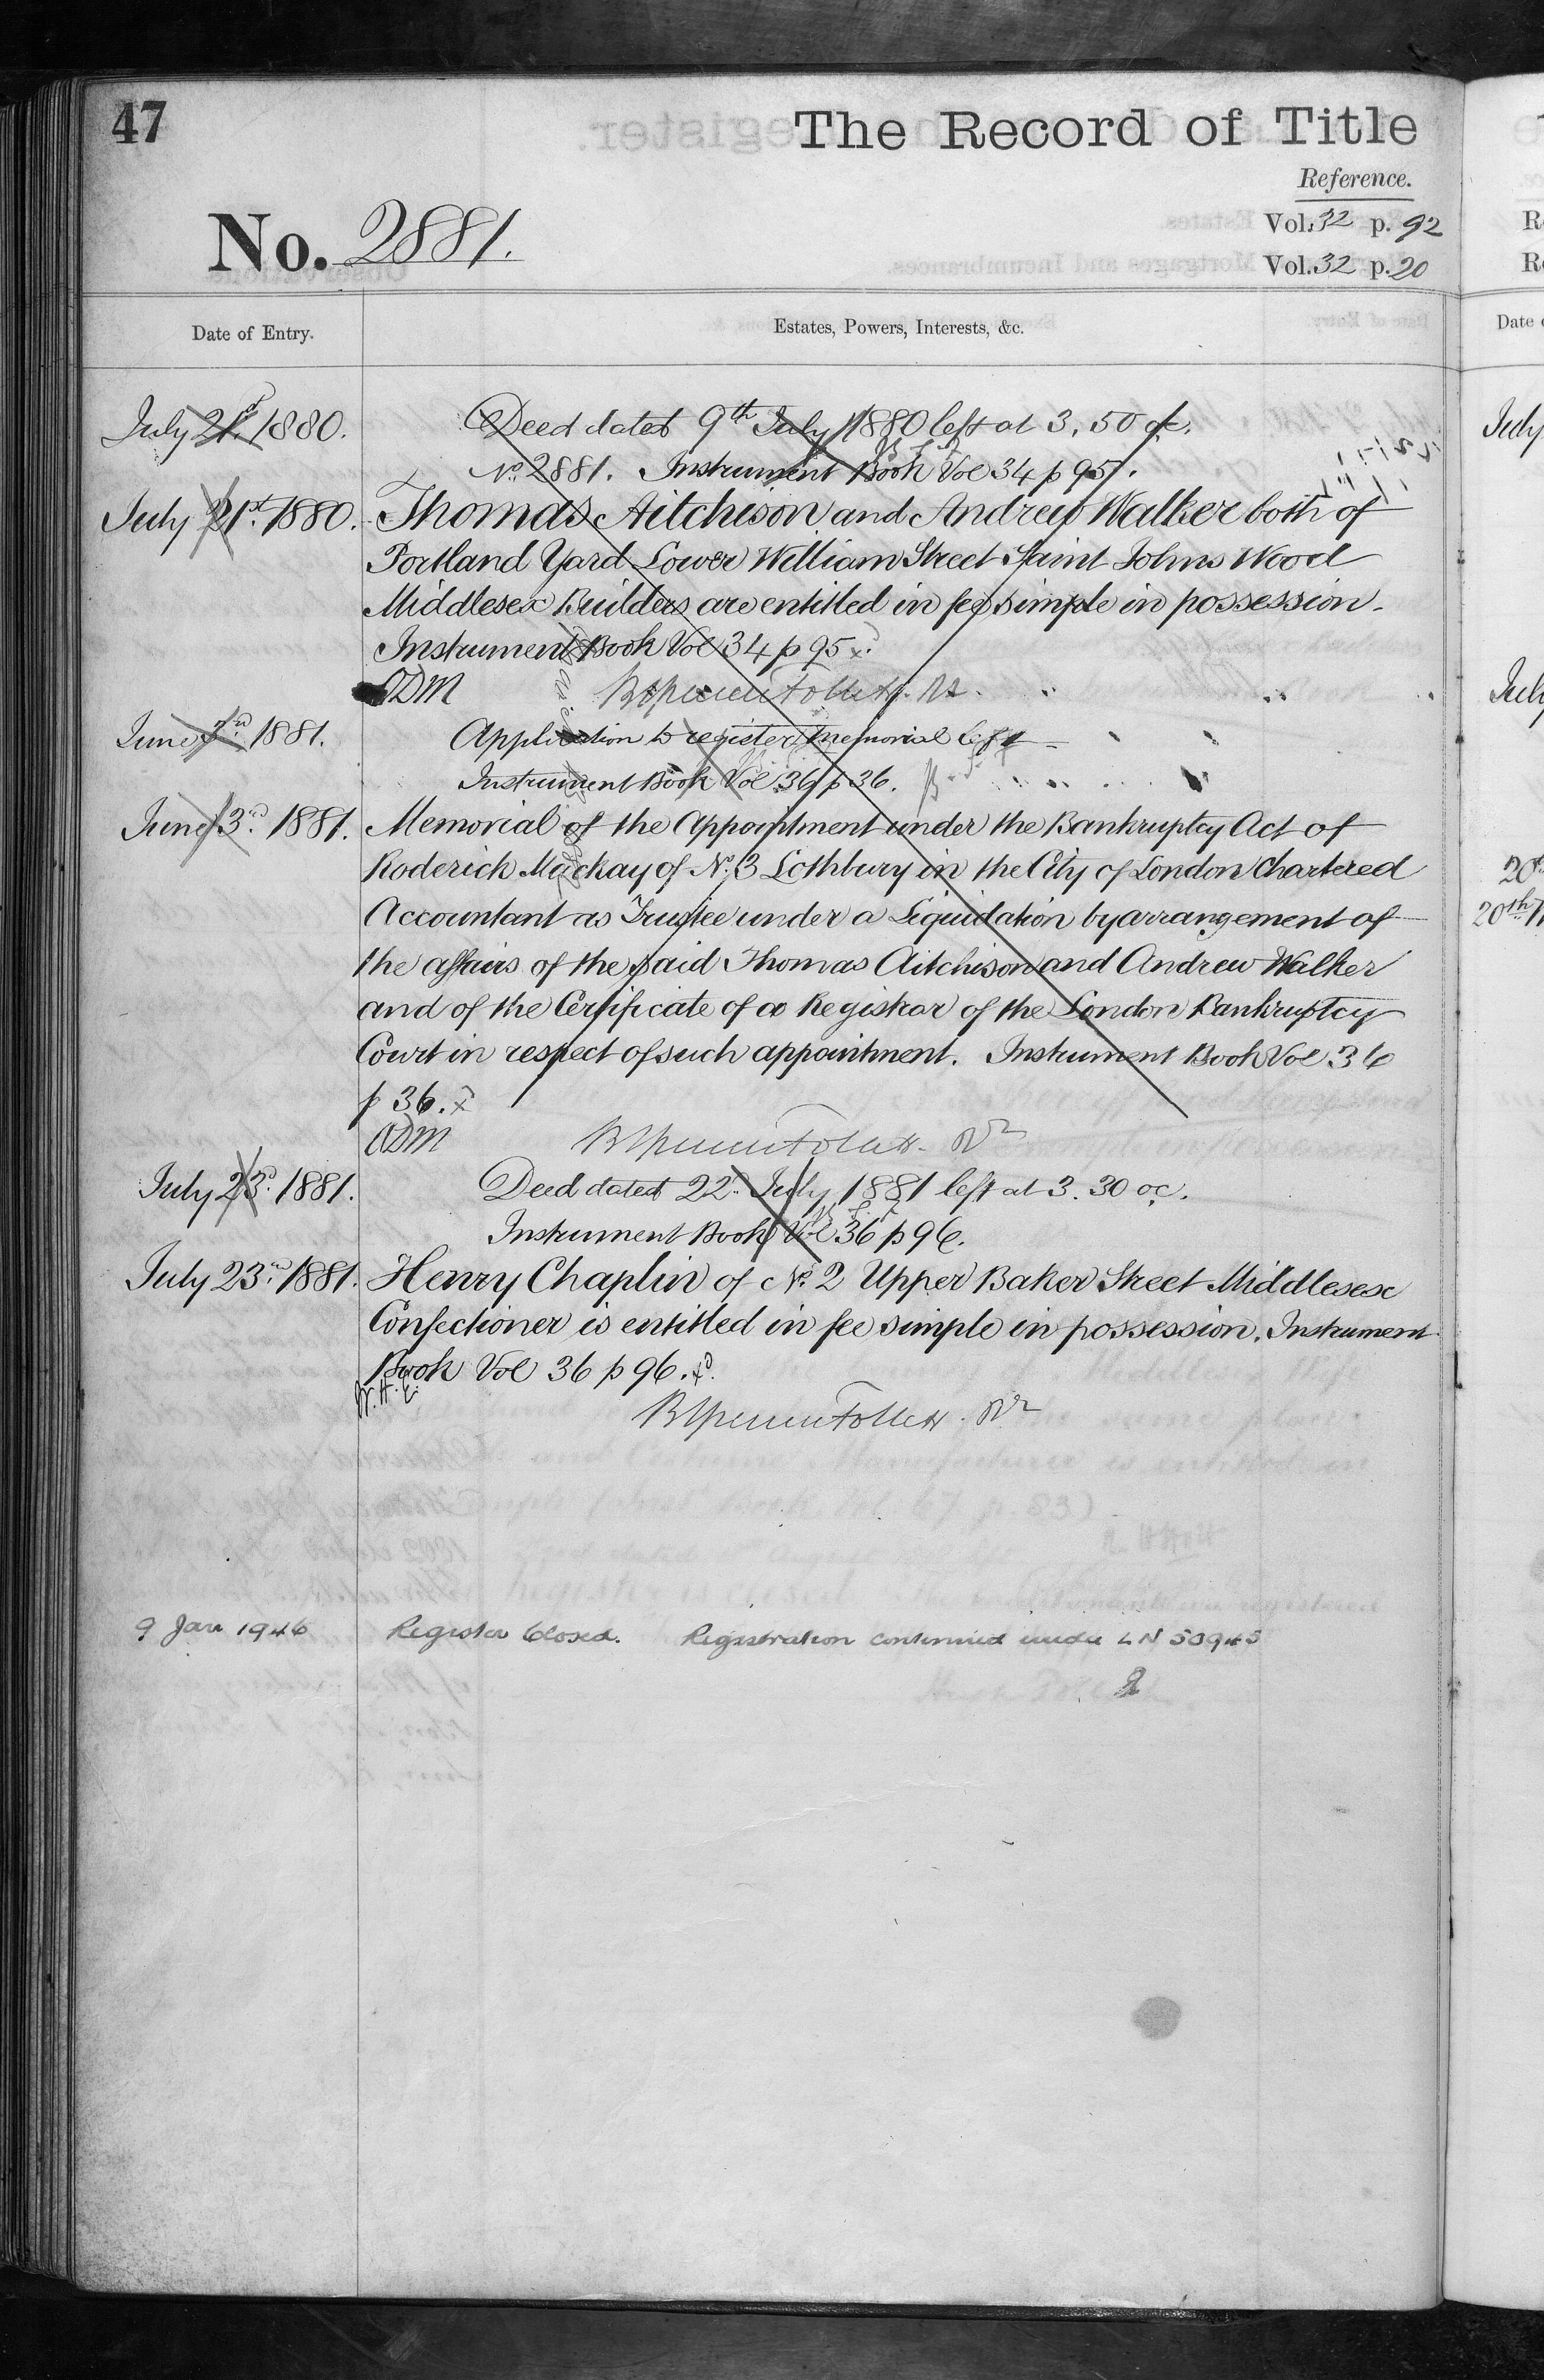 47
The Record of Title
Reference.
No. 2881.
Vol. 32 p. 92
Vol. 32 p. 20
Date of Entry. Estates, Powers, Interests, &c.
July 21st 1880. Deed dated 9th July 1880 left at 3.50 oc.
No. 2881. Instrument Book Vol 34 p 95.
July 21st 1880. Thomas Aitchison and Andrew Walker both of
Portland Yard Lower William Street Saint Johns Wood
Middlesex Builders are entitled in fee simple in possession.
Instrument Book Vol 34 p 95 xd
ODM
June 3rd 1881. Application to register memorial left
Instrument Book Vol 36 p 36.
June 3rd 1881. Memorial of the Appointment under the Bankruptcy Act of
Roderick Mackay of No. 3 Lothbury in the City of London Chartered
Accountant as Trustee under a Liquidation by arrangement of
the affairs of the said Thomas Aitchison and Andrew Walker
and of the Certificate of a Registrar of the London Bankruptcy
Court in respect of such appointment. Instrument Book Vol 36
p 36. xd
ODM
July 23d. 1881. Deed dated 22d. July 1881 left at 3.30 oc.
Instrument Book Vol 36 p 96.
July 23rd 1881. Henry Chaplin of No. 2 Upper Baker Street Middlesex
Confectioner is entitled in fee simple in possession. Instrument
Book Vol 36 p 96. xd.
W.H.E.
9 Jan 1946 Register Closed. Registration continued under LN 50945
Date
July
July
20th